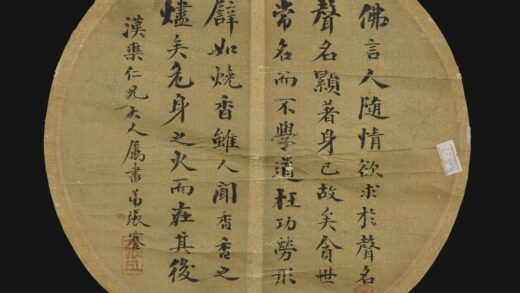 佛言人隨情欲求扵聲名
聲名顯著身已故矣貪世
常名而不學道枉功勞形
譬如燒香雖人聞香香之
燼矣危身之火而在其後
漢渠仁兄大人属書弟張謇